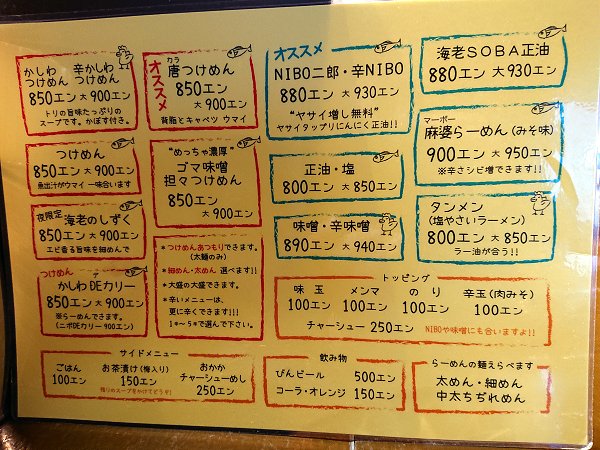 かしわ 辛かしわ
つけめん つけめん
850エン 大900エン
トリの旨味たっぷりの
スープです。かぼす付き。
オススメ
カラ
唐つけめん
850エン
大900エン
背脂とキャベツ ウマイ
オススメ
NIBO二郎・辛NIBO
880エン 大930エン
"ヤサイ増し無料"
ヤサイタップリにんにく正油!!
海老SOBA正油
880エン 大930エン
つけめん
850エン 大900エン
魚出汁がウマイ 一味合います
"めっちゃ濃厚"
ゴマ味噌
担々つけめん
850エン
大900エン
正油・塩
800エン 大850エン
マーボー
麻婆らーめん(みそ味)
900エン 大950エン
※辛さシビ増できます!!
夜限定
海老のしずく
850エン 大900エン
エビ香る旨味を細めんで
味噌・辛味噌
890エン 大940エン
タンメン
(塩やさいラーメン)
800エン 大850エン
ラー油が合う!!
つけめん
かしわDEカリー
850エン 大900エン
※らーめんできます。
(ニボDEカリー 900エン)
*つけめんあつもりできます。
(太麺のみ)
*細めん・太めん 選べます!!
*大盛の大盛できます。
*辛いメニューは、
更に辛くできます!!!
1*~5*で選んで下さい。
トッピング
味玉 メンマ のり 辛玉(肉みそ)
100エン 100エン 100エン 100エン
チャーシュー 250エン NIBOや味噌にも合いますよ!!
サイドメニュー
ごはん お茶漬け(梅入り) おかか
チャーシューめし
100エン 150エン 250エン
残りのスープをかけてどうぞ!
飲み物
びんビール 500エン
コーラ・オレンジ 150エン
らーめんの麺えらべます
太めん・細めん
中太ちぢれめん